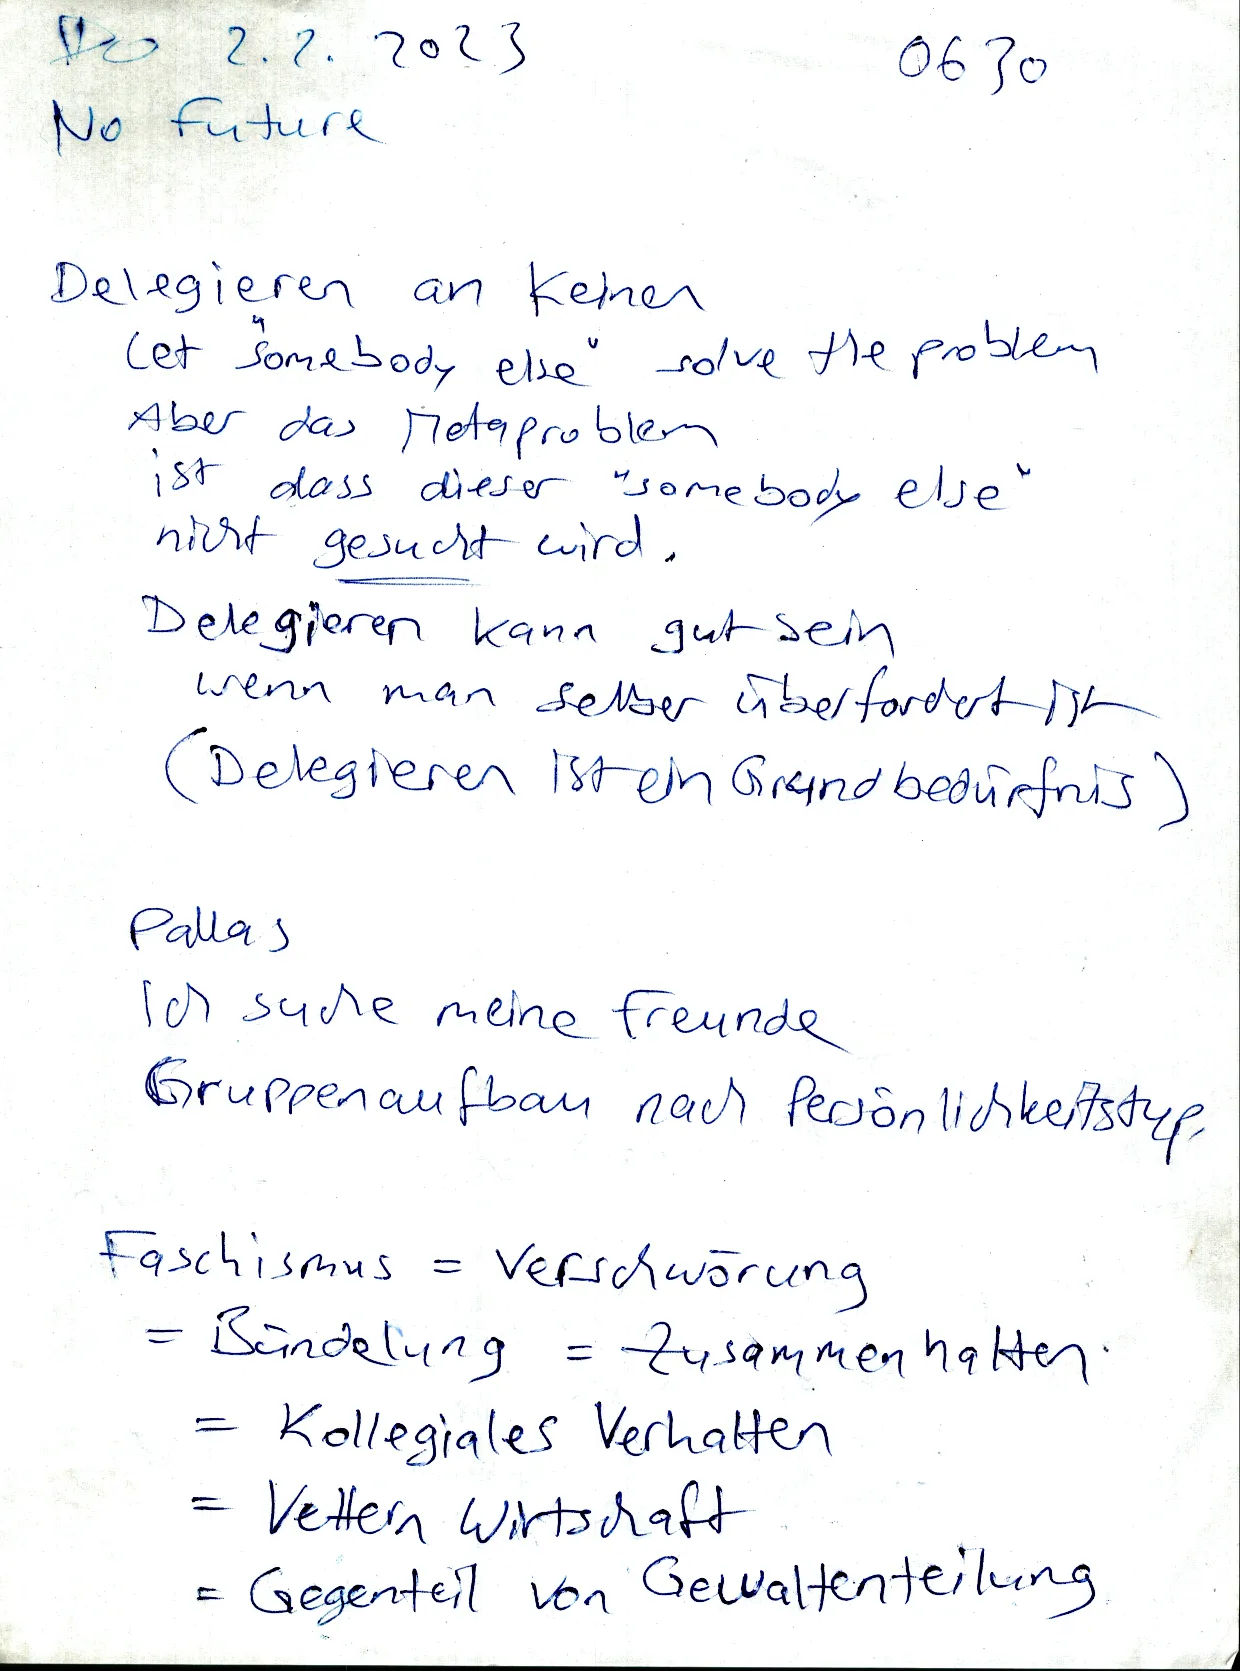 Do 2.2.2023 0630
No Future
Delegieren an Keinen
Let "somebody else" solve the problem
Aber das Metaproblem
ist dass dieser "somebody else"
nicht gesucht wird.
Delegieren kann gut sein
wenn man selber überfordert ist
(Delegieren ist ein Grundbedürfnis)
Pallas
Ich suche meine Freunde
Gruppenaufbau nach Persönlichkeitstyp.
Faschismus = Verschwörung
= Bündelung = Zusammenhalten.
= Kollegiales Verhalten
= Vettern Wirtschaft
= Gegenteil von Gewaltenteilung